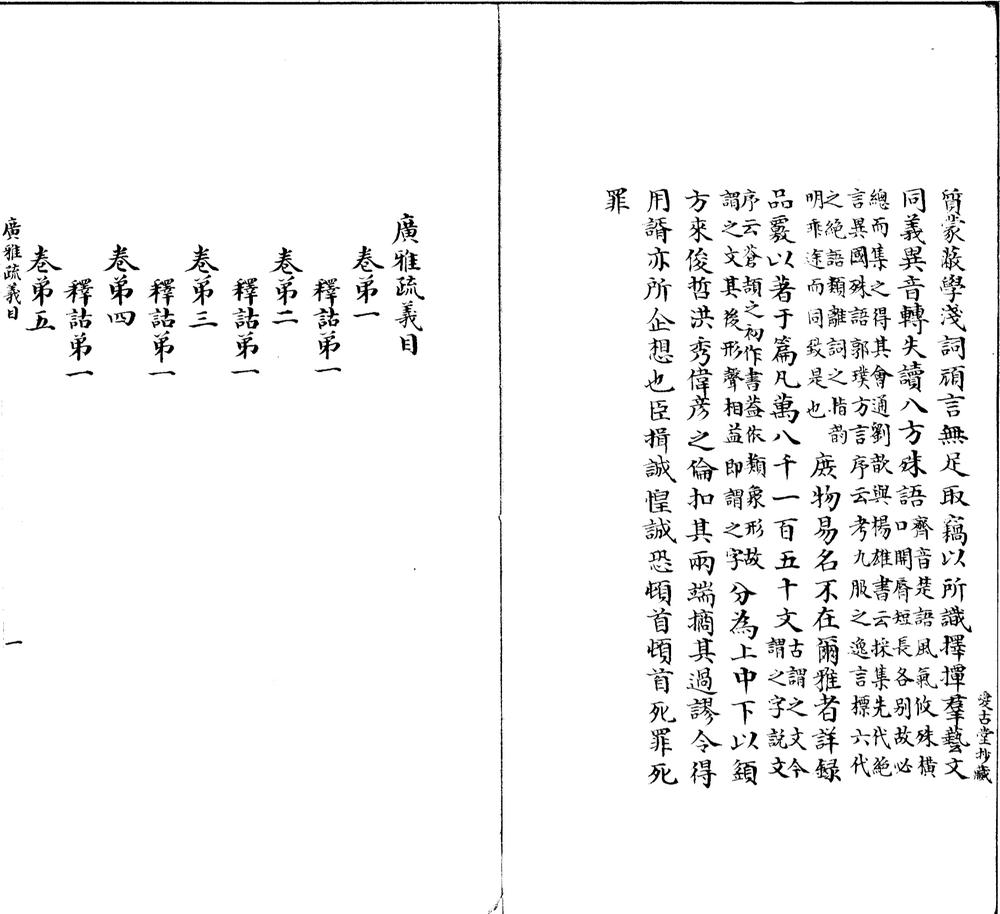 愛古堂抄藏
質蒙蔽學淺詞頑言無足取竊以所識擇撢羣藝文
同義異音轉失讀八方殊語
齊音楚語風氣攸殊橫
口開脣短長各别故必
總而集之得其會通劉歆與楊雄書云採集先代絕
言異國殊語郭璞方言序云考九服之逸言標六代
之絕語類離詞之指韵
明乖途而同致是也
庶物易名不在爾雅者詳録
品覈以著于篇凡萬八千一百五十文
古謂之文今
謂之字說文
序云蒼頡之初作書葢依類象形故
謂之文其後形聲相益即謂之字
分為上中下以
方來俊哲洪秀偉彦之倫扣其兩端摘其過謬令得
用諝亦所企想也臣揖誠惶誠恐頓首頓首死罪死
罪
廣雅疏義目
卷弟一
釋詁弟一
卷弟二
釋詁弟一
卷弟三
釋詁弟一
卷弟四
釋詁弟一
卷弟五
廣雅疏義目
一